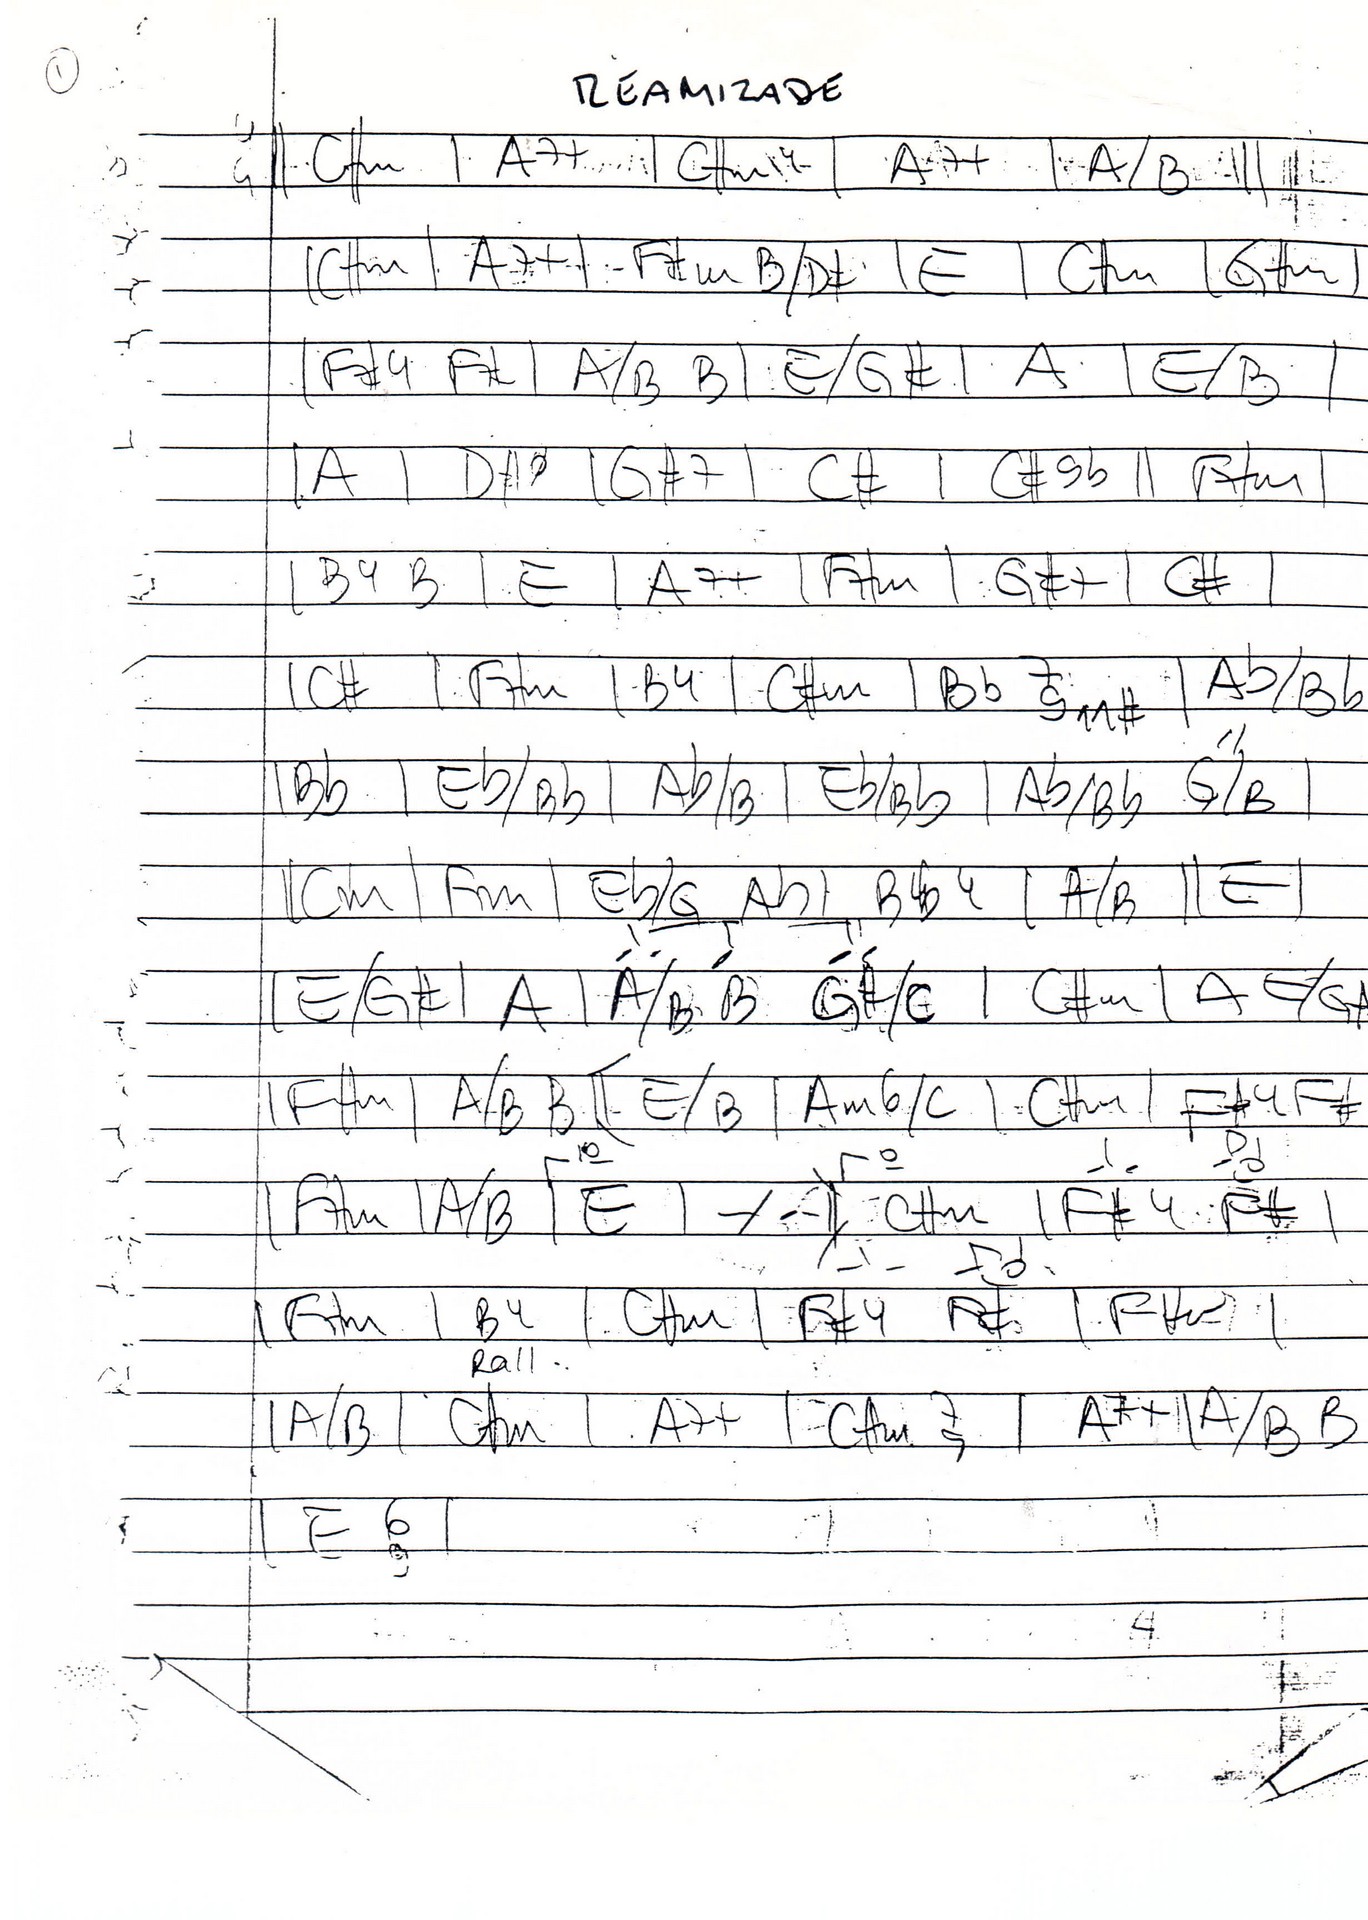 1
REAMIZADE
4/4 || C#m | A7+ | C#m14 | A7+ | A/B ||
| C#m | A7+ | F#m B/D# | E | C#m | G#m |
| F#4 F# | A/B B | E/G# | A | E/B |
| A | D#º | G#7 | C# | C# 9b || F#m |
| B4 B | E | A7+ | F#m | G#7 | C# |
| C# | F#m | B4 | C#m | Bb 7 9 11# | Ab/Bb
| Bb | Eb/Bb | Ab/B | Eb/Bb | Ab/Bb G/B |
|| Cm | Fm | Eb/G Ab | Bb4 | A/B || E |
| E/G# | A | A/B B G#/C | C#m | A E/G#
| F#m | A/B B | E/B | Am6/C | C#m | F#4 F#
1º 2º
| F#m | A/B | E | ٪ || C#m | F#4 F# |
| F#m | B4 | C#m | F#4 F# | F#m |
Rall..
| A/B | C#m | A7+ | C#m 7 9 | A7+ || A/B B
| E 6 9 |